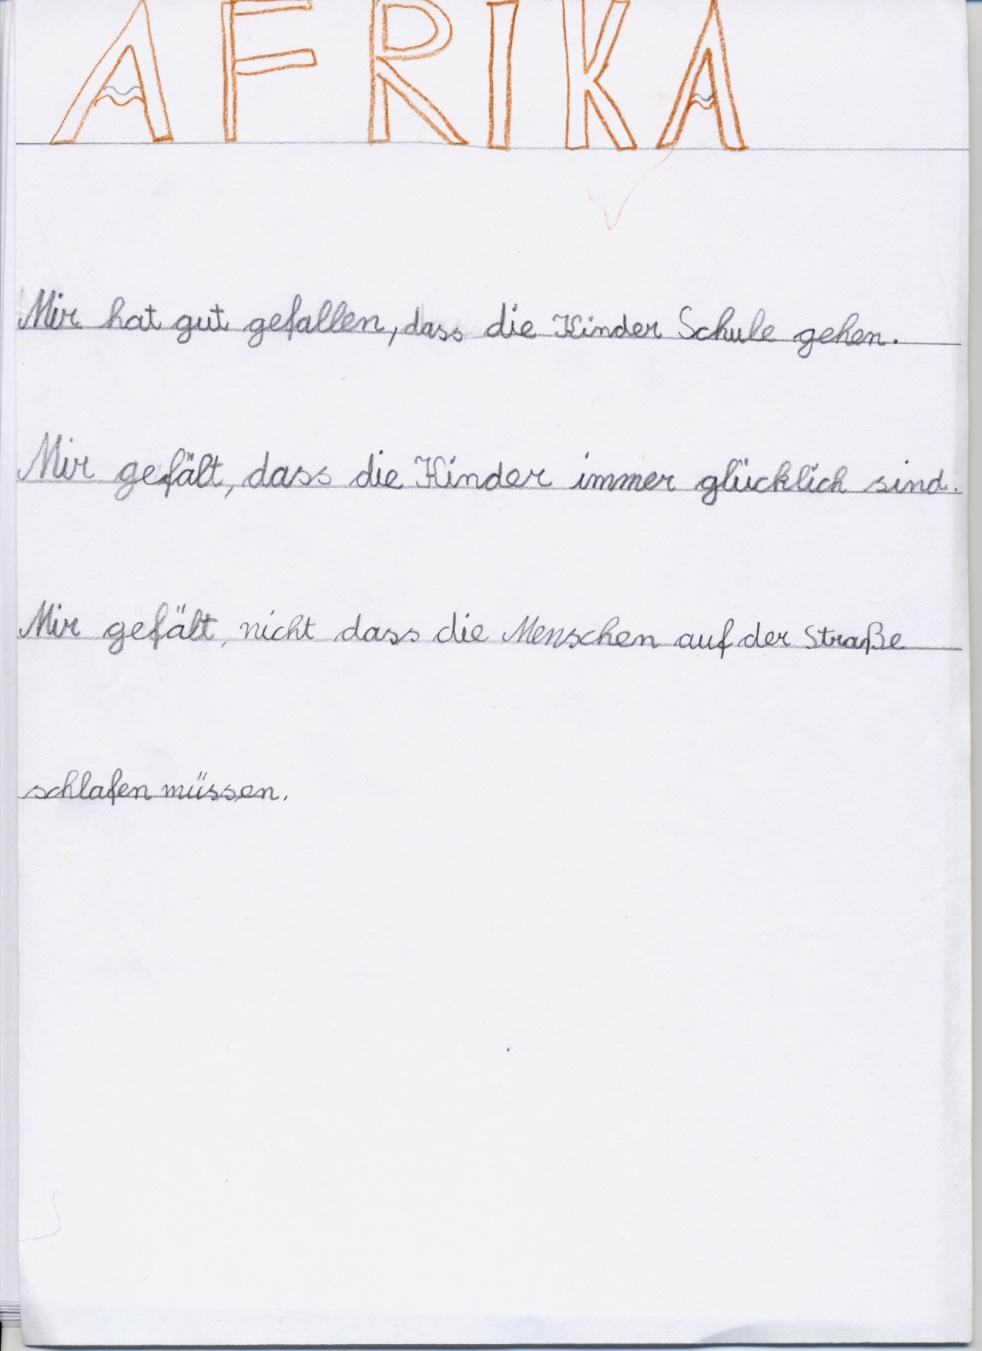 AFRIKA
Mir hat gut gefallen, dass die Kinder Schule gehen.
Mir gefält, dass die Kinder immer glücklich sind.
Mir gefält, nicht dass die Menschen auf der Straße
schlafen müssen.